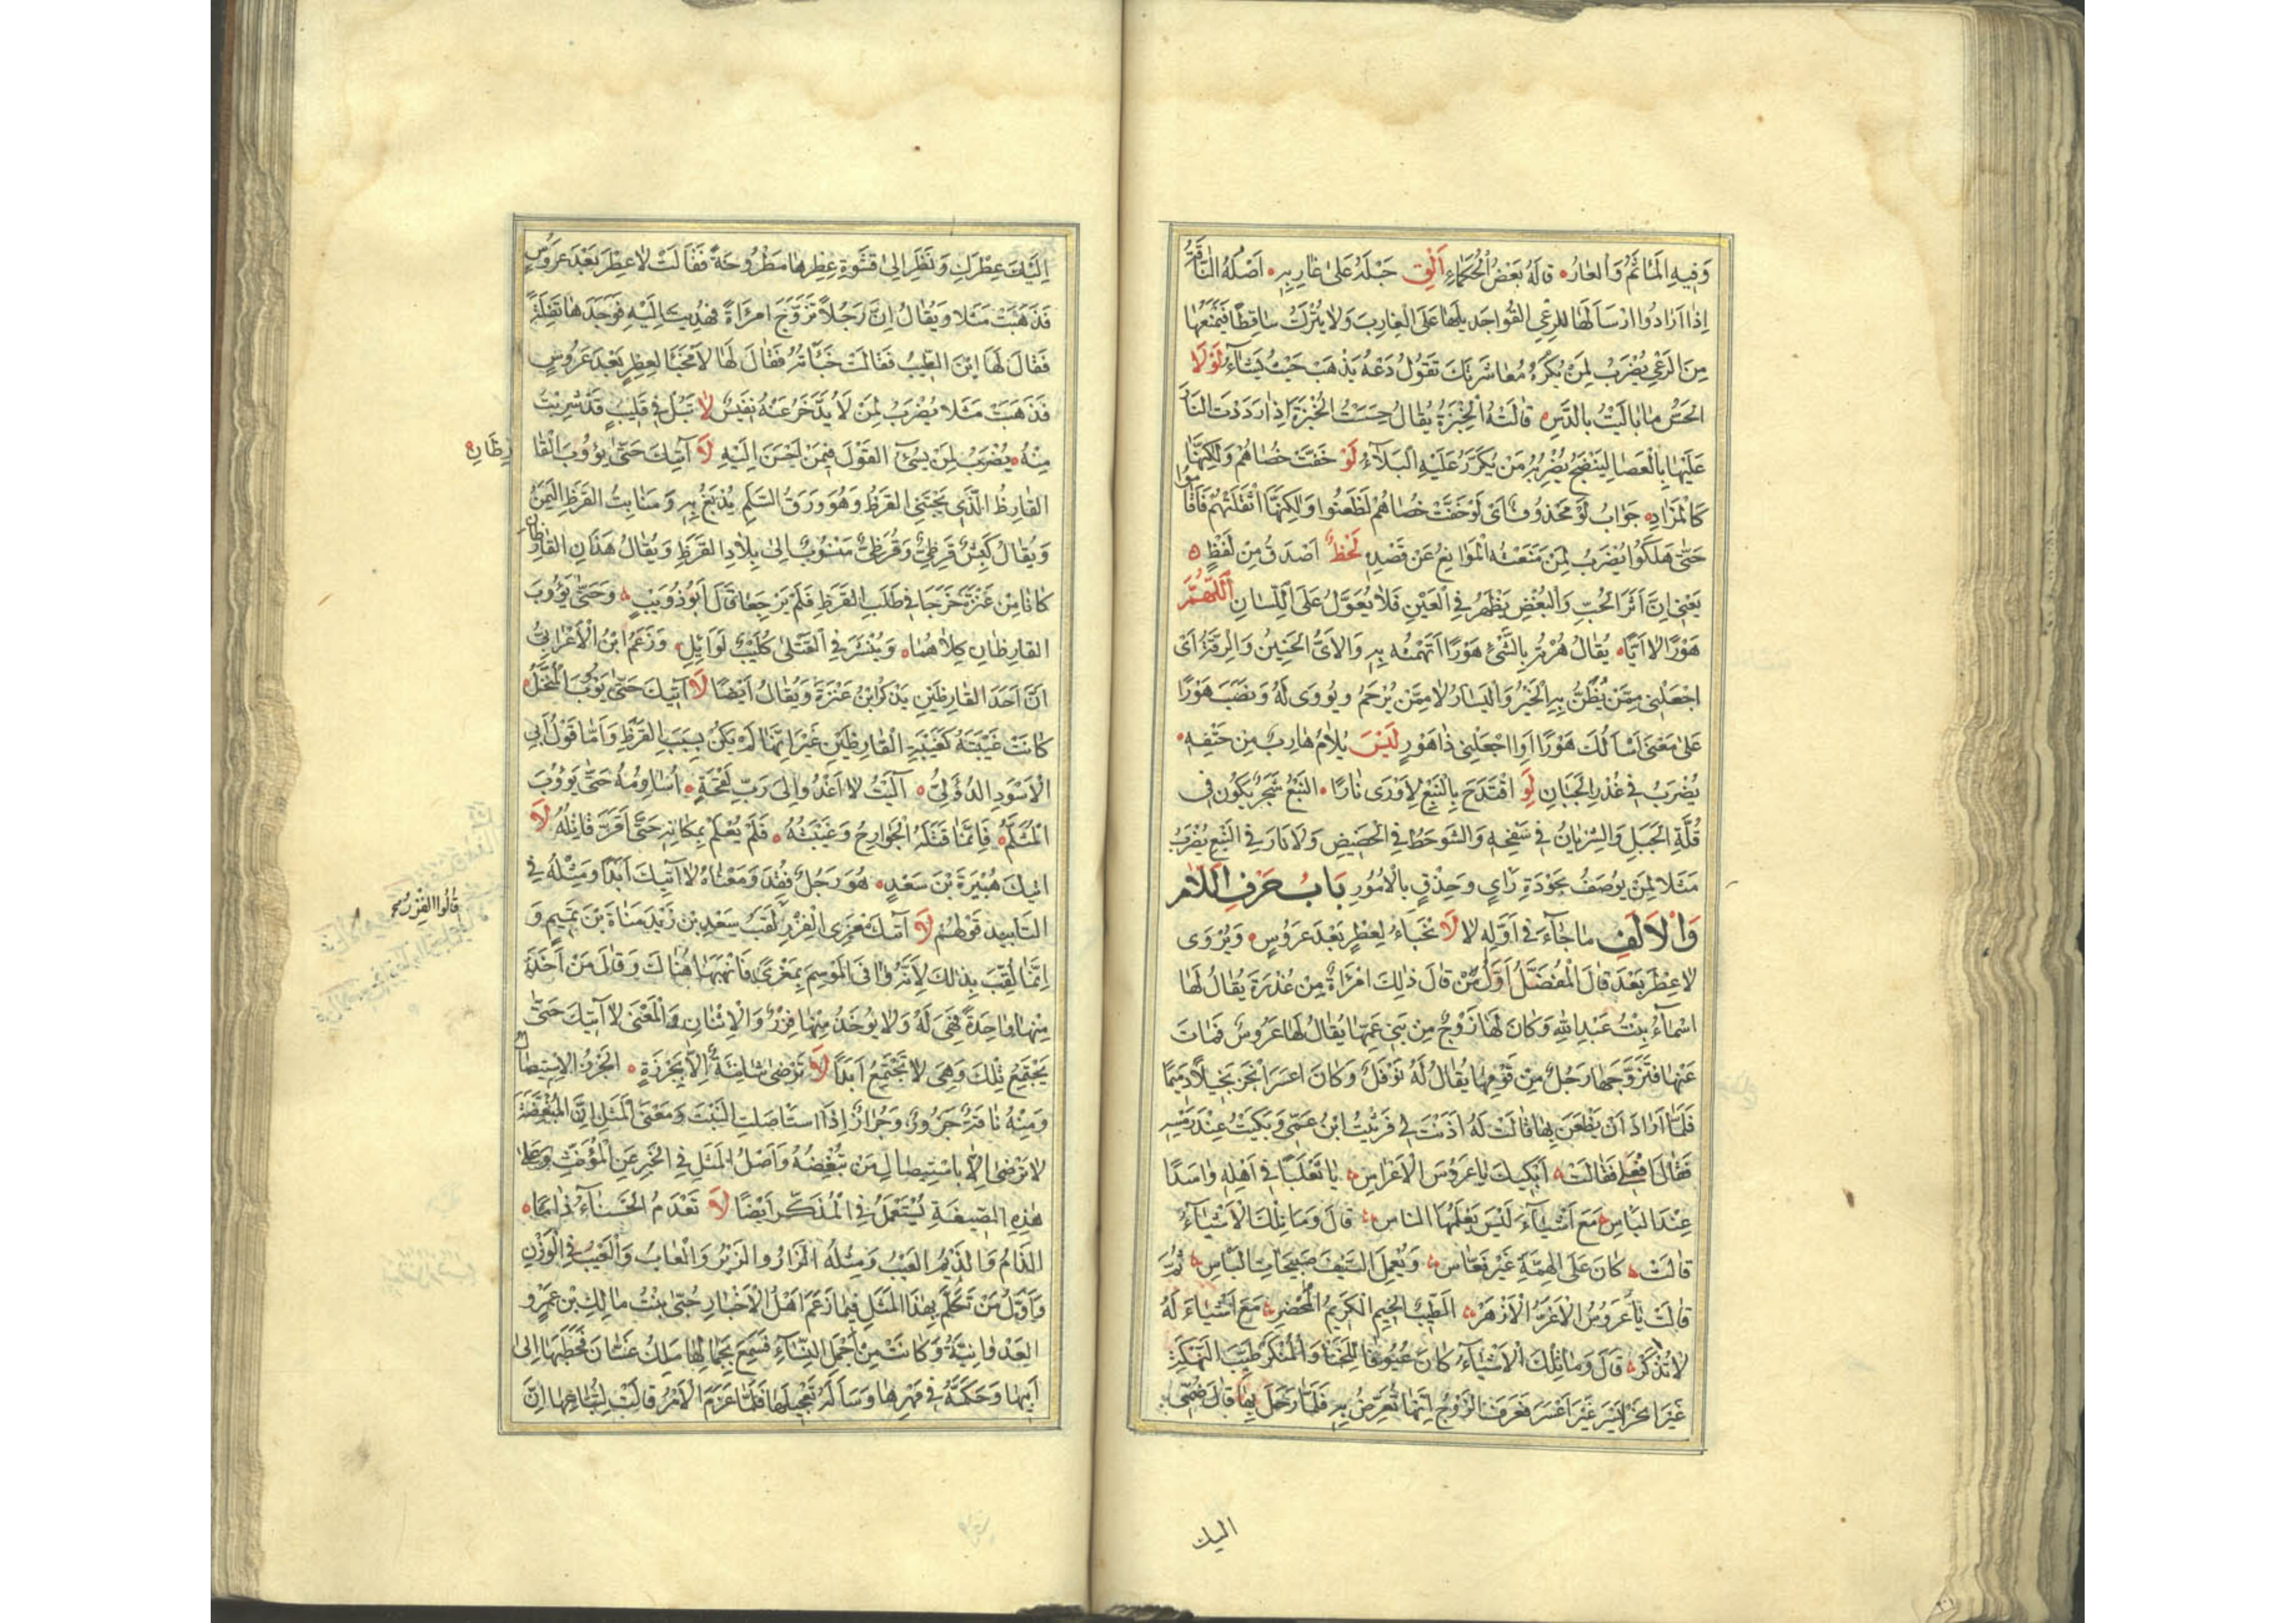 وَفِيهِ المَأثَمُ وَالعَارُ قَالَهُ بَعْضُ الحُكَمَاءِ اَلْقِ حَبْلَهُ عَلَى غَارِبِهِ اَصْلُهُ النَّاقَةُ
اِذَا اَرَادُوا ارْسَالَهَا لِلرَّعْيِ القُوا جَدِيلَهَا عَلَى الغَارِبِ وَلَا يُتْرَكُ سَاقِطًا فَيَمْنَعُهَا
مِنَ الرَّعْيِ يُضْرَبُ لِمَنْ يُكْرَهُ مُعَاشَرَتُكَ تَقُولُ دَعْهُ يَذْهَبْ حَيْثُ يَشَاءُ لَوْلَا
الحَسُّ مَا بَالَيْتُ بِالدَّسِّ قَالَتْهُ الخُبْزَةُ يُقَالُ حَسَسْتُ الخُبْزَةَ اِذَا رَدَدْتَ النَّارَ
عَلَيْهَا بِالعَصَا لِيَنْضَجَ يُضْرَبُ مَنْ يُكَرَّرُ عَلَيْهِ البَلَاءُ لَوْ خَفَّتْ خُصَاهُمْ وَلٰكِنَّهَا
كَالمَزَادِ جَوَابُ لَوْ مَحْذُوفٌ اَيْ لَوْ خَفَّتْ خُصَاهُمْ لَظَعَنُوا وَلٰكِنَّهَا اَثْقَلَتْهُمْ فَاَقَامُوا
حَتَّى هَلَكُوا يُضْرَبُ لِمَنْ مَنَعَتْهُ المَوَانِعُ عَنْ قَصْدِهِ لَحْظٌ اَصْدَقُ مِنْ لَفْظٍ
يَعْنِي اِنَّ اَثَرَ الحُبِّ وَالبُغْضِ يَظْهَرُ فِي العَيْنِ فَلَا يُعَوَّلُ عَلَى اللِّسَانِ اَللّٰهُمَّ
هَوْرًا لَا اَيًّا يُقَالُ هُرْتُهُ بِالشَّيْءِ هَوْرًا اَتْهَمْتُهُ بِهِ وَالاَيُّ الحَنِينُ وَالرِّقَّةُ اَيْ
اجْعَلْنِي مِمَّنْ يُظَنُّ بِهِ الخَيْرُ وَاليَسَارُ لَا مِمَّنْ يُرْحَمُ وَيُووَى لَهُ وَنَصَبَ هَوْرًا
عَلَى مَعْنَى اَسْاَلُكَ هَوْرًا اَوِ اجْعَلْنِي ذَا هَوْرٍ لَيْسَ يُلَامُ هَارِبٌ مِنْ حَتْفِهِ
يُضْرَبُ فِي عُذْرِ الجَبَانِ لَوِ اقْتَدَحَ بِالنَّبْعِ لَاَوْرَى نَارًا النَّبْعُ شَجَرٌ يَكُونُ فِي
قُلَّةِ الجَبَلِ وَالشِّرْيَانُ فِي سَفْحِهِ وَالشَّوْحَطُ فِي الحَضِيضِ وَلَا نَارَ فِي النَّبْعِ يُضْرَبُ
مَثَلًا لِمَنْ يُوصَفُ بِجَوْدَةِ رَايٍ وَحِذْقٍ بِالاُمُورِ بَابُ حَرْفِ اللَّام
وَالْاَلِفِ مَا جَاءَ فِي اَوَّلِهِ لَا لَا مَخْبَاَ لِعِطْرٍ بَعْدَ عَرُوسٍ وَيُرْوَى
لَا عِطْرَ بَعْدَ قَالَ المُفَضَّلُ اَوَّلُ مَنْ قَالَ ذٰلِكَ امْرَاَةٌ مِنْ عُذْرَةَ يُقَالُ لَهَا
اَسْمَاءُ بِنْتُ عَبْدِ اللهِ وَكَانَ لَهَا زَوْجٌ مِنْ بَنِي عَمِّهَا يُقَالُ لَهَا عَرُوسٌ فَمَاتَ
عَنْهَا فَتَزَوَّجَهَا رَجُلٌ مِنْ قَوْمِهَا يُقَالُ لَهُ نَوْفَلٌ وَكَانَ اَعْسَرَ اَبْخَرَ بَخِيلًا دَمِيمًا
فَلَمَّا اَرَادَ اَنْ يَظْعَنَ بِهَا قَالَتْ لَهُ اَذِنْتَ لِي فَرَثَيْتُ ابْنَ عَمِّي وَبَكَيْتُ عِنْدَ رَمْسِهِ
فَقَالَ افْعَلِي فَقَالَتْ اَبْكِيكَ يَا عَرُوسَ الاَعْرَاسِ يَا ثَعْلَبًا فِي اَهْلِهِ وَاَسَدًا
عِنْدَ البَاسِ مَعَ اَشْيَاءَ لَيْسَ يَعْلَمُهَا النَّاسُ قَالَ وَمَا تِلْكَ الاَشْيَاءُ
قَالَتْ كَانَ عَلَى الهِمَّةِ غَيْرَ نَعَّاسِ وَيُعْمِلُ السَّيْفَ صَبِيحَاتِ البَاسِ ثُمَّ
قَالَتْ يَا عَرُوسُ الاَغَرَّ الاَزْهَرْ الطَّيِّبُ الخِيمِ الكَرِيمُ المَحْضَرِ مَعَ اَشْيَاءَ لَهُ
لَا تُذْكَرُ قَالَ وَمَا تِلْكَ الاَشْيَاءُ كَانَ عَيُوفًا لِلخَنَا وَالمُنْكَرِ طَيِّبَ النَّكْهَةِ
غَيْرَ اَبْخَرَ اَيْسَرَ غَيْرَ اَعْسَرَ فَعَرَفَ الزَّوْجُ اَنَّهَا تُعَرِّضُ بِهِ فَلَمَّا رَحَلَ بِهَا قَالَ ضُمِّي
اليك
اِلَيْكِ عِطْرَكِ وَنَظَرَ اِلَى قَشْوَةِ عِطْرِهَا مَطْرُوحَةً فَقَالَتْ لَا عِطْرَ بَعْدَ عَرُوسٍ
فَذَهَبَتْ مَثَلًا وَيُقَالُ اِنَّ رَجُلًا تَزَوَّجَ امْرَاَةً فَهُدِيَتْ اِلَيْهِ فَوَجَدَهَا تَفِلَةً
فَقَالَ لَهَا اَيْنَ الطِّيبُ فَقَالَتْ خَبَّاتُهُ فَقَالَ لَهَا لَا مَخْبَأَ لِعِطْرٍ بَعْدَ عَرُوسٍ
فَذَهَبَتْ مَثَلًا يُضْرَبُ لِمَنْ لَا يُدَّخَرُ عَنْهُ نَفِيسٌ لَا تَبُلْ فِي قَلِيبٍ قَدْ شَرِبْتَ
مِنْهُ يُضْرَبُ لِمَنْ يُسِيءُ القَوْلَ فِيمَنْ اَحْسَنَ اِلَيْهِ لَا آتِيكَ حَتَّى يَؤُوبَ القَا
رِظَانِ
القَارِظُ الَّذِي يَجْتَنِي القَرَظَ وَهُوَ وَرَقُ السَّلَمِ يُدْبَغُ بِهِ وَمَنَابِتُ القَرَظِ اليَمَنُ
وَيُقَالُ كَبْشٌ قَرَظِيٌّ وَقُرَظِيٌّ مَنْسُوبٌ اِلَى بِلَادِ القَرَظِ وَيُقَالُ هَذَانِ القَارِظَانِ
كَانَا مِنْ عَنَزَةَ خَرَجَا فِي طَلَبِ القَرَظِ فَلَمْ يَرْجِعَا قَالَ اَبُو ذُوَيْبٍ وَحَتَّى يَؤُوبَ
القَارِظَانِ كِلَاهُمَا وَيُنْشَرَ فِي القَتْلَى كُلَيْبٌ لِوَائِلِ وَزَعَمَ ابْنُ الاَعْرَابِيِّ
اَنَّ اَحَدَ القَارِظَيْنِ يَذْكُرُ ابْنُ عَنَزَةَ وَيُقَالُ اَيْضًا لَا آتِيكَ حَتَّى يَؤُبَ المُنَخَّلُ
كَانَتْ غَيْبَتُهُ كَغَيْبَةِ القَارِظَيْنِ غَيْرَ اَنَّهَا لَمْ يَكُنْ بِسَبَبِ القَرَظِ وَاَمَّا قَوْلُ اَبِي
الاَسْوَدِ الدُّؤَلِيُّ آلَيْتُ لَا اَغْدُو اِلَى رَبِّ لِقْحَةٍ اُسَاوِمُهُ حَتَّى يَؤُوبَ
المُثَلَّمُ فَاِنَّمَا قَتَلَهُ الخَوَارِجُ وَغَيَّبَتْهُ فَلَمْ يُعْلَمْ بِمَكَانِهِ حَتَّى اَقَرَّ قَاتِلُهُ لَا
اتِيكَ هُبَيْرَةَ بْنَ سَعْدٍ هُوَ رَجُلٌ فُقِدَ وَمَعْنَاهُ لَا آتِيكَ اَبَدًا وَمِثْلُهُ فِي
التَّابِيدِ قَوْلُهُمْ لَا آتِيكَ مِعْزَى الفِزْرِ لَقَبُ سَعْدِ بْنِ زَيْدِ مَنَاةَ بْنِ تَمِيمٍ وَ
قَالُوا الفِزْرُ
اِنَّمَا لُقِّبَ بِذٰلِكَ لِاَنَّهُ وَافَى المَوْسِمَ بِمِعْزًى فَاَنْهَبَهَا هُنَاكَ وَقَالَ مَنْ اَخَذَ
مِنْهَا وَاحِدَةً فَهِيَ لَهُ وَلَا يُوخَذُ مِنْهَا فِزْرٌ وَالاِثْنَانِ وَالمَعْنَى لَا آتِيكَ حَتَّى
يَجْتَمِعَ تِلْكَ وَهِيَ لَا تَجْتَمِعُ اَبَدًا لَا تَرْضَى شَانِئَةٌ اِلَّا بِجَرْزَةٍ الجَرْزُ الاِسْتِيصَالُ
وَمِنْهُ نَاقَةٌ جَرُوزٌ وَجُرَازٌ اِذَا اسْتَاصَلَتِ النَّبْتَ وَمَعْنَى المَثَلِ اِنَّ المُبْغِضَةَ
لَا تَرْضَى اِلَّا بِاسْتِيصَالِ مَنْ تُبْغِضُهُ وَاَصْلُ المَثَلِ فِي الخَبَرِ عَنِ المُؤَنَّثِ وَعَلَى
هٰذِهِ الصِّيغَةِ يُسْتَعْمَلُ فِي المُذَكَّرِ اَيْضًا لَا تَعْدَمُ الحَسْنَاءُ ذَامًا
الذَّامُ وَالذَّيْمُ العَيْبُ وَمِثْلُهُ الزَّارُ وَالزِّيرُ وَالعَابُ وَالعَيْبُ فِي الوَزْنِ
وَاَوَّلُ مَنْ تَكَلَّمَ بِهٰذَا المَثَلِ فِيمَا زَعَمَ اَهْلُ الاَخْبَارِ حُبَّى بِنْتُ مَالِكِ بْنِ عَمْرٍو
العَدْوَانِيَّةُ وَكَانَتْ مِنْ اَجْمَلِ النِّسَاءِ فَسَمِعَ بِجَمَالِهَا مَلِكُ غَسَّانَ فَخَطَبَهَا اِلَى
اَبِيهَا وَحَكَّمَهُ فِي مَهْرِهَا وَسَاَلَهُ تَعْجِيلَهَا فَلَمَّا عَزَمَ الاَمْرُ قَالَتْ لِتُبَّاعِهَا اِنَّ